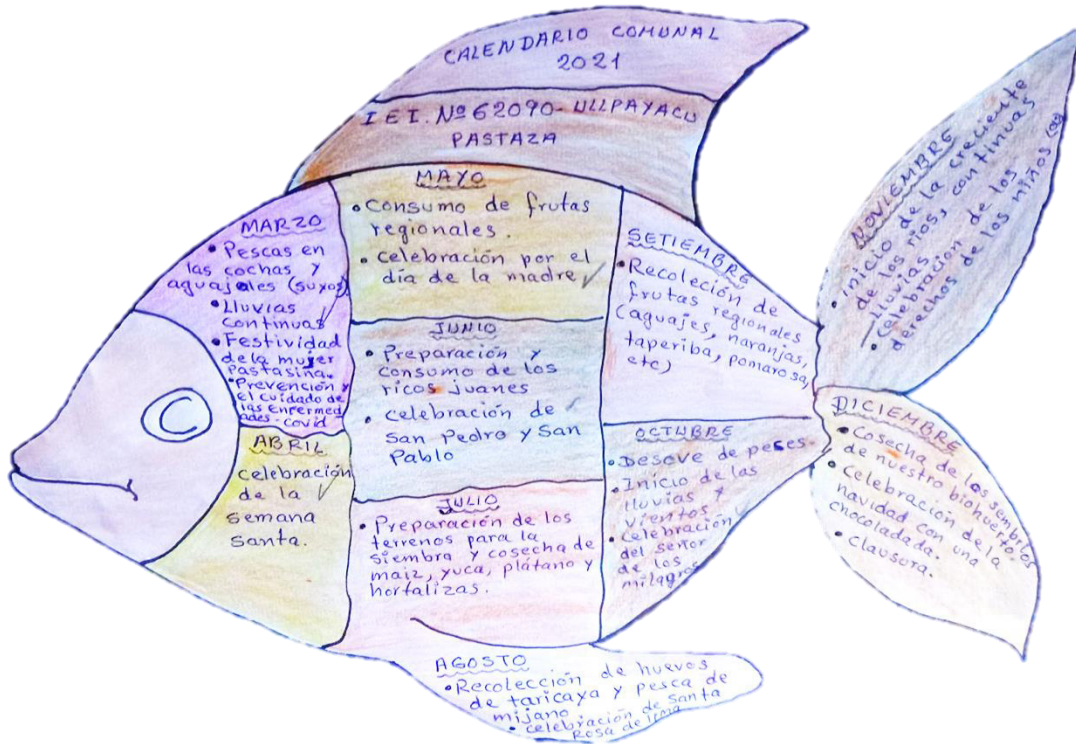 CALENDARIO COMUNAL
2021
I E I. Nº 62090- ULLPAYACU
PASTAZA
MARZO
• Pescas en
las cochas y
aguajales (suyos)
• Lluvias
continuas
• Festividad
de la mujer
Pastasina.
• Prevención y
el cuidado de
las enfermed
ades-covid
ABRIL
celebración
de la
semana
santa.
MAYO
• Consumo de frutas
regionales.
• celebración por el
día de la madre
JUNIO
• Preparación y
consumo de los
ricos juanes
• celebración de
San Pedro y San
Pablo
JULIO
• Preparación de los
terrenos para la
siembra y cosecha de
maíz, yuca, plátano y
hortalizas.
AGOSTO
• Recolección de huevos
de taricaya y pesca de
mijano
• celebración de Santa
Rosa de lima
SETIEMBRE
• Recoleción de
frutas regionales
(aguajes, naranjas,
taperiba, pomarosa,
etc)
OCTUBRE
• Desove de peces.
• Inicio de las
lluvias y
vientos
• celebración
del señor
de los
milagros
NOVIEMBRE
• inicio de la creciente
de los rios, con continuas
lluvias
• celebración de los
derechos de los niños (as)
DICIEMBRE
• Cosecha de los sembrios
de nuestro biohuerto.
• celebración de la
navidad con una
chocoladada.
• Clausora.